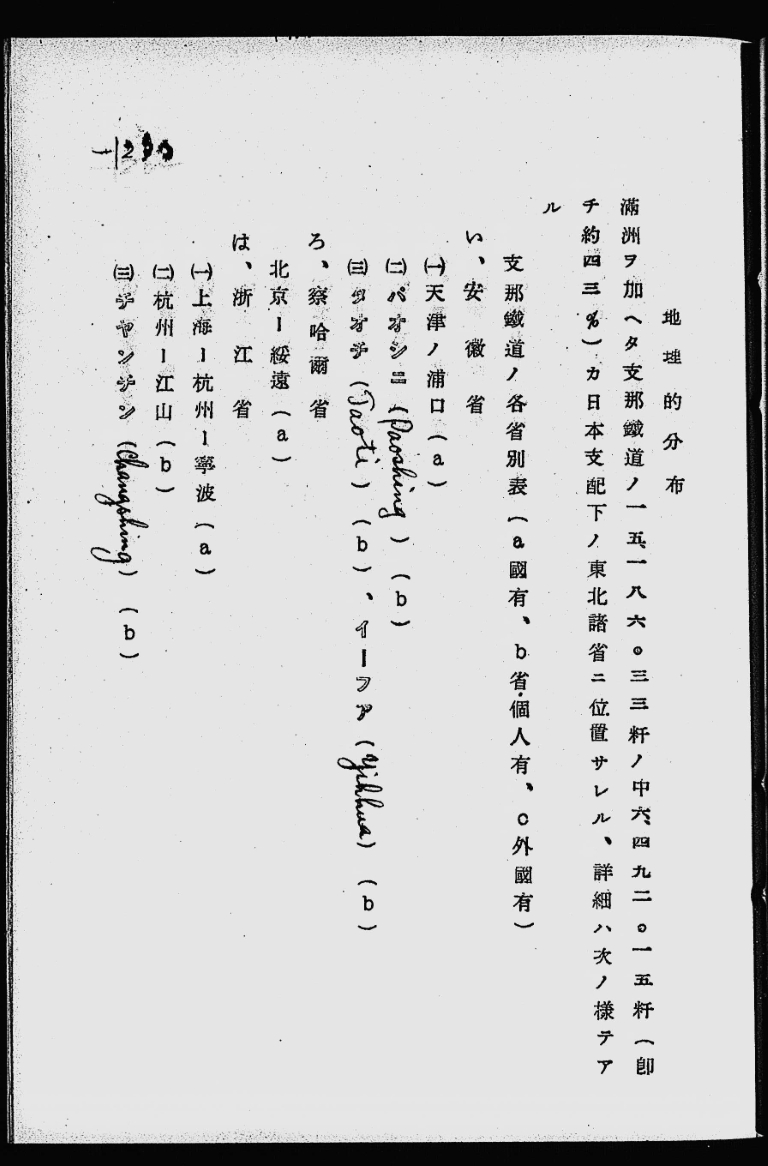 地理的分布
滿洲ヲ加ヘタ支那鐵道ノ一五、一八六。三三粁ノ中六、四九二。一五粁(卽
チ約四三%)カ日本支配下ノ東北諸省ニ位置サレル、詳細ハ次ノ様テア
ル
支那鐵道ノ各省別表(a國有、b省.個人有、c外國有)
い、安徽省
㈠天津ノ浦口(a)
㈡パオシニ(Paoshing)(b)
㈢タオチ(Taoti)(b)、イーフア(Yihhua)(b)
ろ、察哈爾省
北京ー綏遠(a)
は、浙江省
㈠上海ー杭州ー寧波(a)
㈡杭州ー江山(b)
㈢チヤンチン(Changshing)(b)